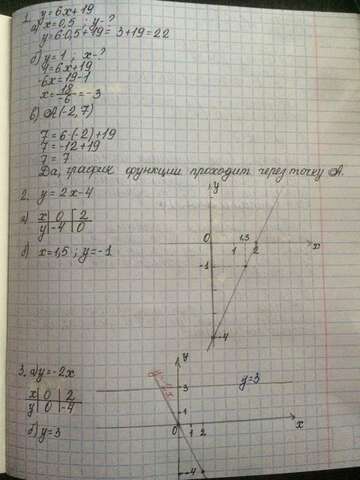 1. y=6x+19
а) x=0,5 ; y-?
y=6·0,5+19=3+19=22
б) y=1 ; x-?
1=6x+19
-6x=19-1
x=18/-6=-3
в) A(-2,7)
7=6·(-2)+19
7=-12+19
7=7
Да, график функции проходит через точку A.
2. y=2x-4
а) x 0 2
y -4 0
б) x=1,5 ; y=-1
y
0 1 1,5 2 x
-1
-4
3. а) y=-2x
x 0 2
y 0 -4
б) y=3
y
y=-2x
3
y=3
1
0 1 2 x
-4